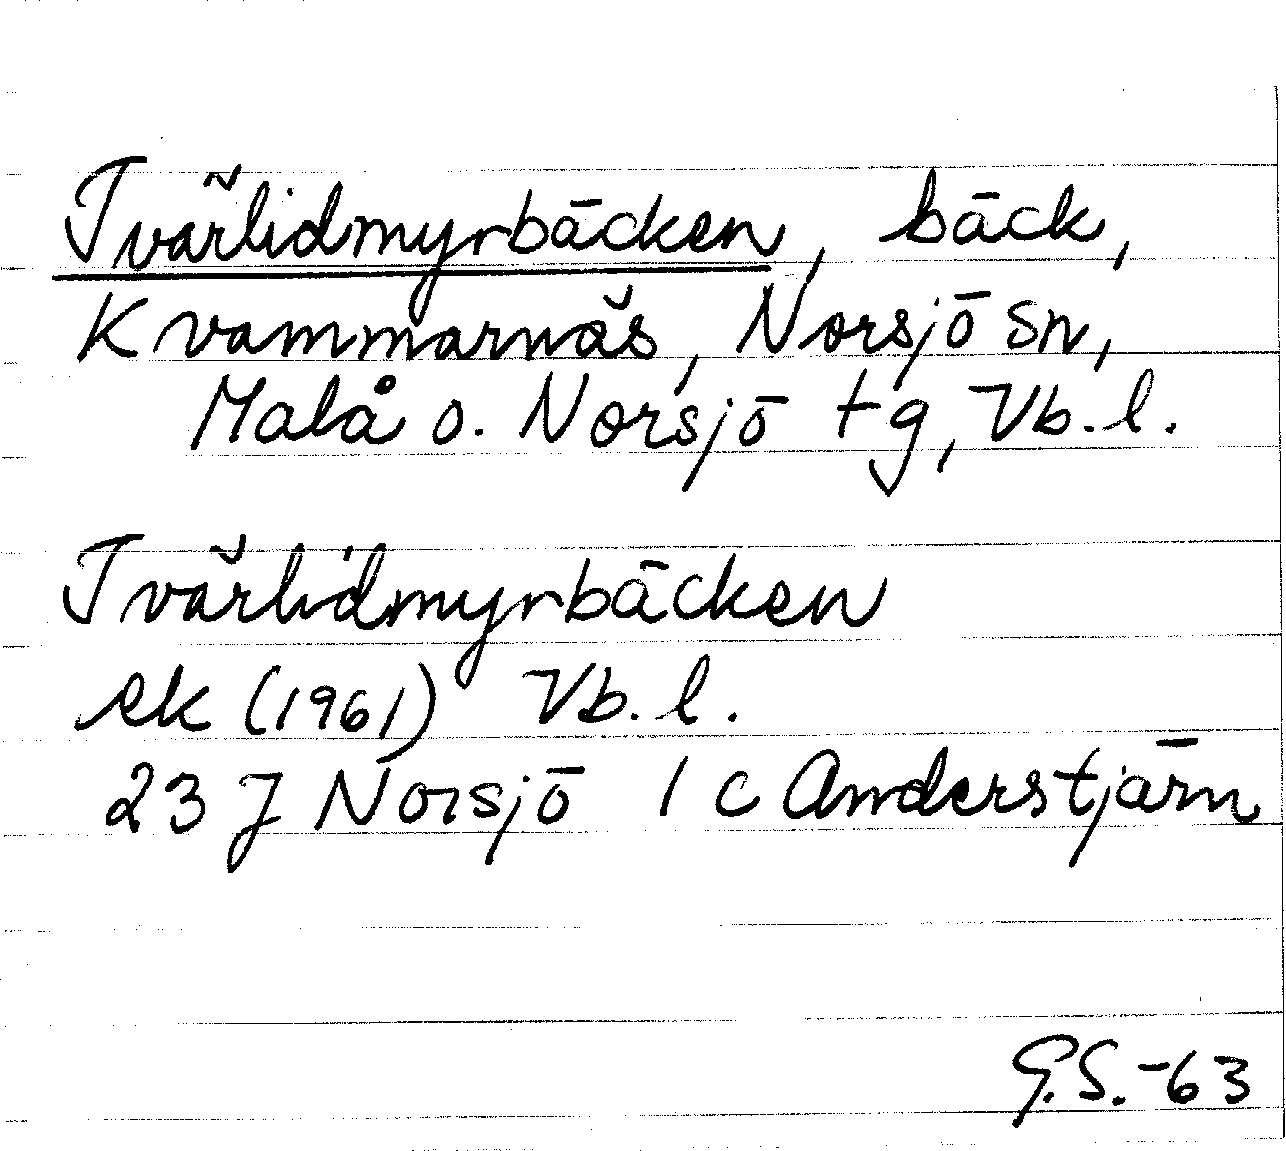 Tvärlidmyrbäcken, bäck,
Kvammarnäs, Norsjö sn,
Malå o. Norsjö tg, Vb. l.
Tvärlidmyrbäcken
ek (1961) Vb. l.
23 J Norsjö 1 c Anderstjärn
G.S.-63